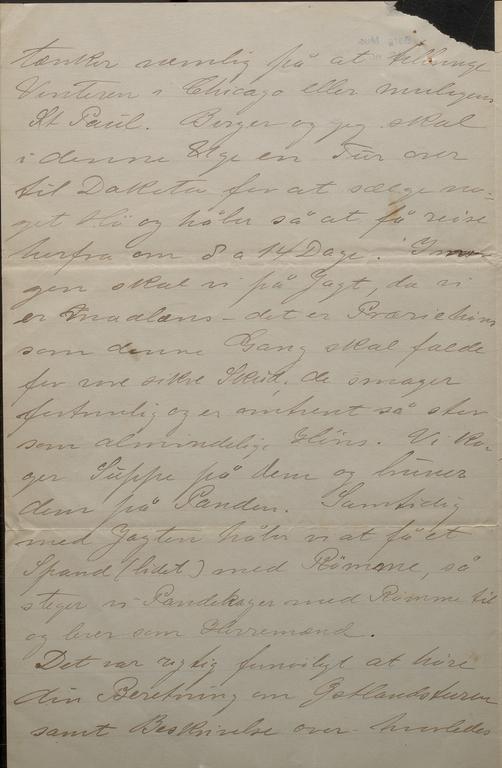 tænker nemlig på at tilbringe
Vinteren i Chicago eller muligens
St Paul. Berger og jeg skal
i denne Uge en Tur over
til Dakota for at sælge no-
get Hö og håber så at få reise
herfra om 8 a 14 Dage. I mor
gen skal vi på Jagt, da vi
er madlens - det er Præriehöns
som denne Gang skal falde
for vore sikre Skud, de smager
fortrinlig og er omtrent så stor
som almindelige Höns. Vi ko-
ger Suppe på dem og bruner
dem på Panden. Samtidig
med Jagten håber vi at få et
Spand (lidet) med Römme, så
steger vi Pandekager med Römme til
og lever som Herremænd.
Det var rigtig fornöieligt at höre
din Beretning om Østlandsturen
samt Beskrivelse over hvorledes